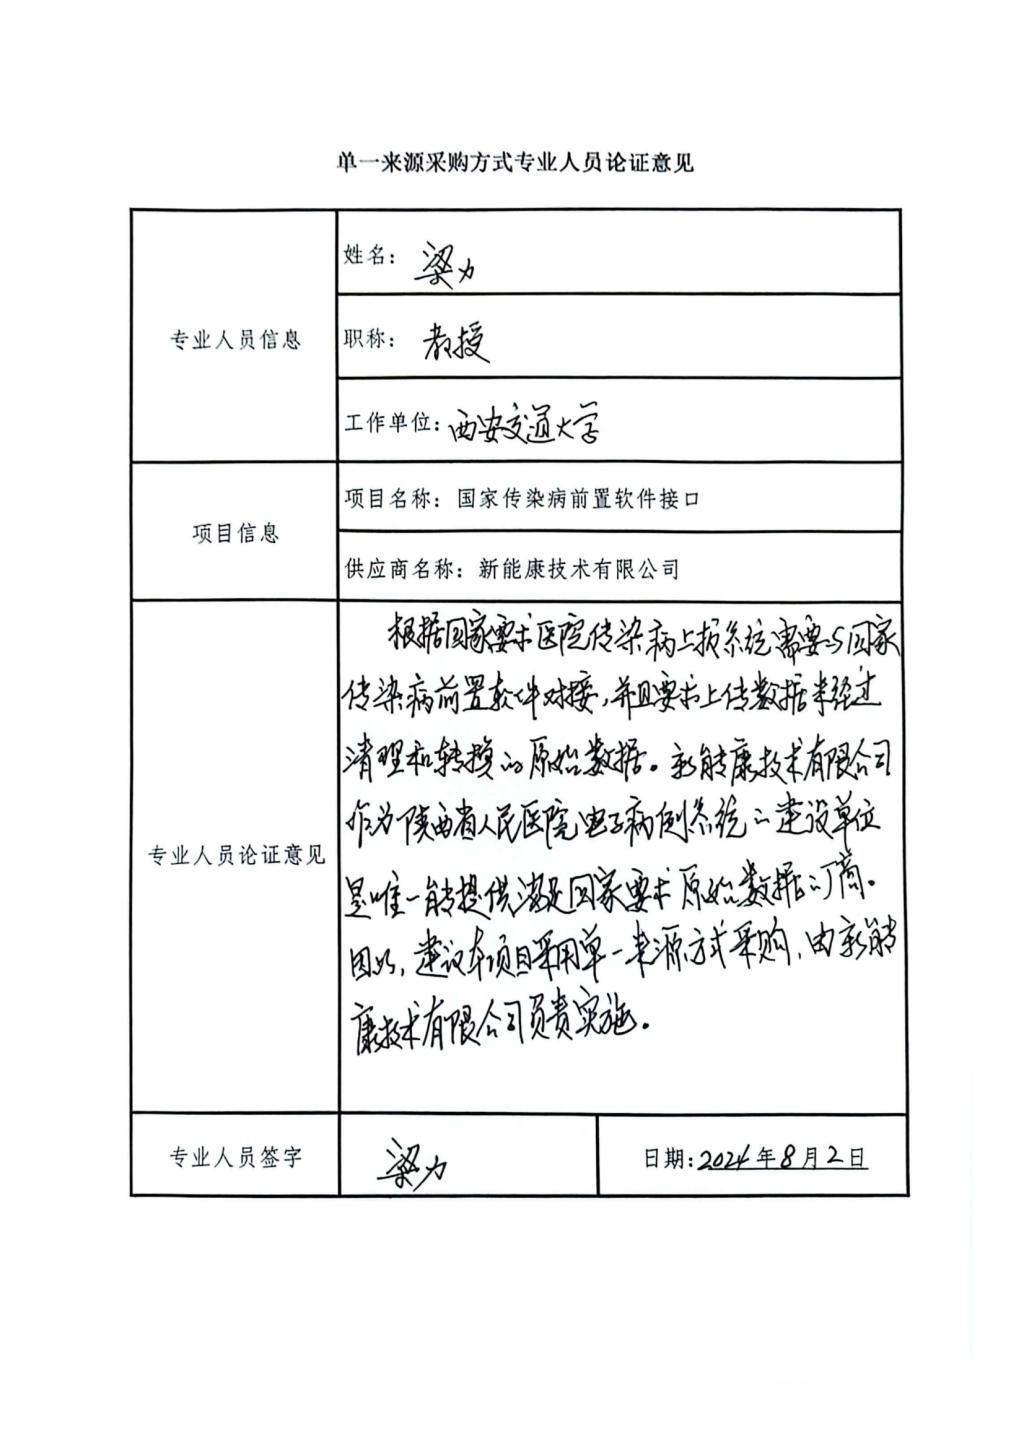 单一来源采购方式专业人员论证意见
专业人员信息
姓名：梁力
职称：教授
工作单位：西安交通大学
项目信息
项目名称：国家传染病前置软件接口
供应商名称：新能康技术有限公司
专业人员论证意见
根据国家要求医院传染病上报系统需要与国家
传染病前置软件对接，并且要求上传数据未经过
清理和转换的原始数据。新能康技术有限公司
作为陕西省人民医院电子病例系统的建设单位
是唯一能提供满足国家要求原始数据的厂商。
因此，建议本项目采用单一来源方式采购，由新能
康技术有限公司负责实施。
专业人员签字
梁力
日期：2024年8月2日